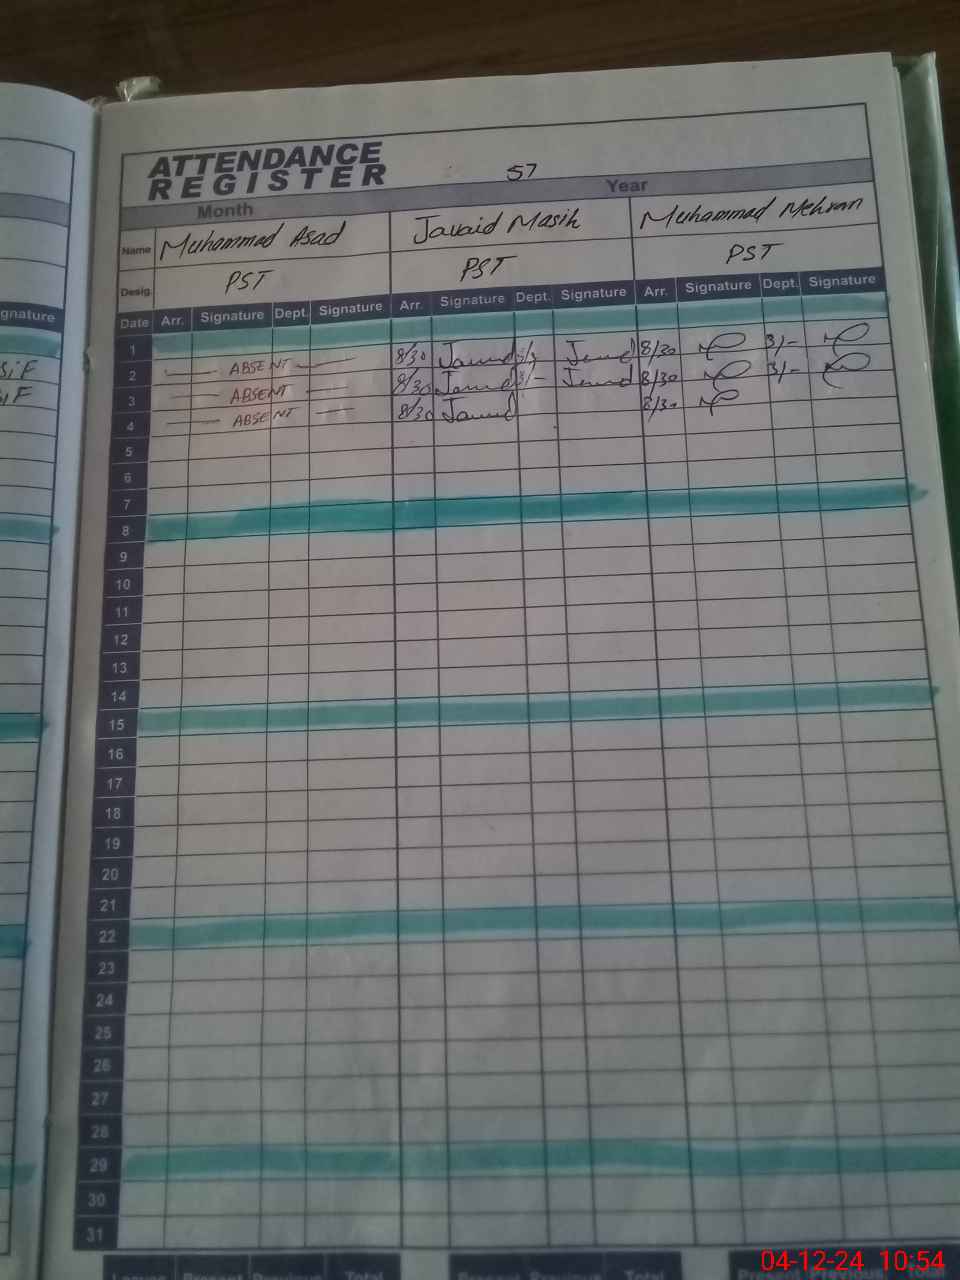 ATTENDANCE
REGISTER
57
Month Year
Name Muhammad Asad Javaid Masih Muhammad Mehran
Desig. PST PST PST
Date Arr. Signature Dept. Signature Arr. Signature Dept. Signature Arr. Signature Dept. Signature
1
2 ABSENT 8/30 Javaid 3/- Javaid 8/30 3/-
3 ABSENT 8/30 Javaid 3/- Javaid 8/30 3/-
4 ABSENT 8/30 Javaid 8/30
5
6
7
8
9
10
11
12
13
14
15
16
17
18
19
20
21
22
23
24
25
26
27
28
29
30
31
Total
04-12-24 10:54